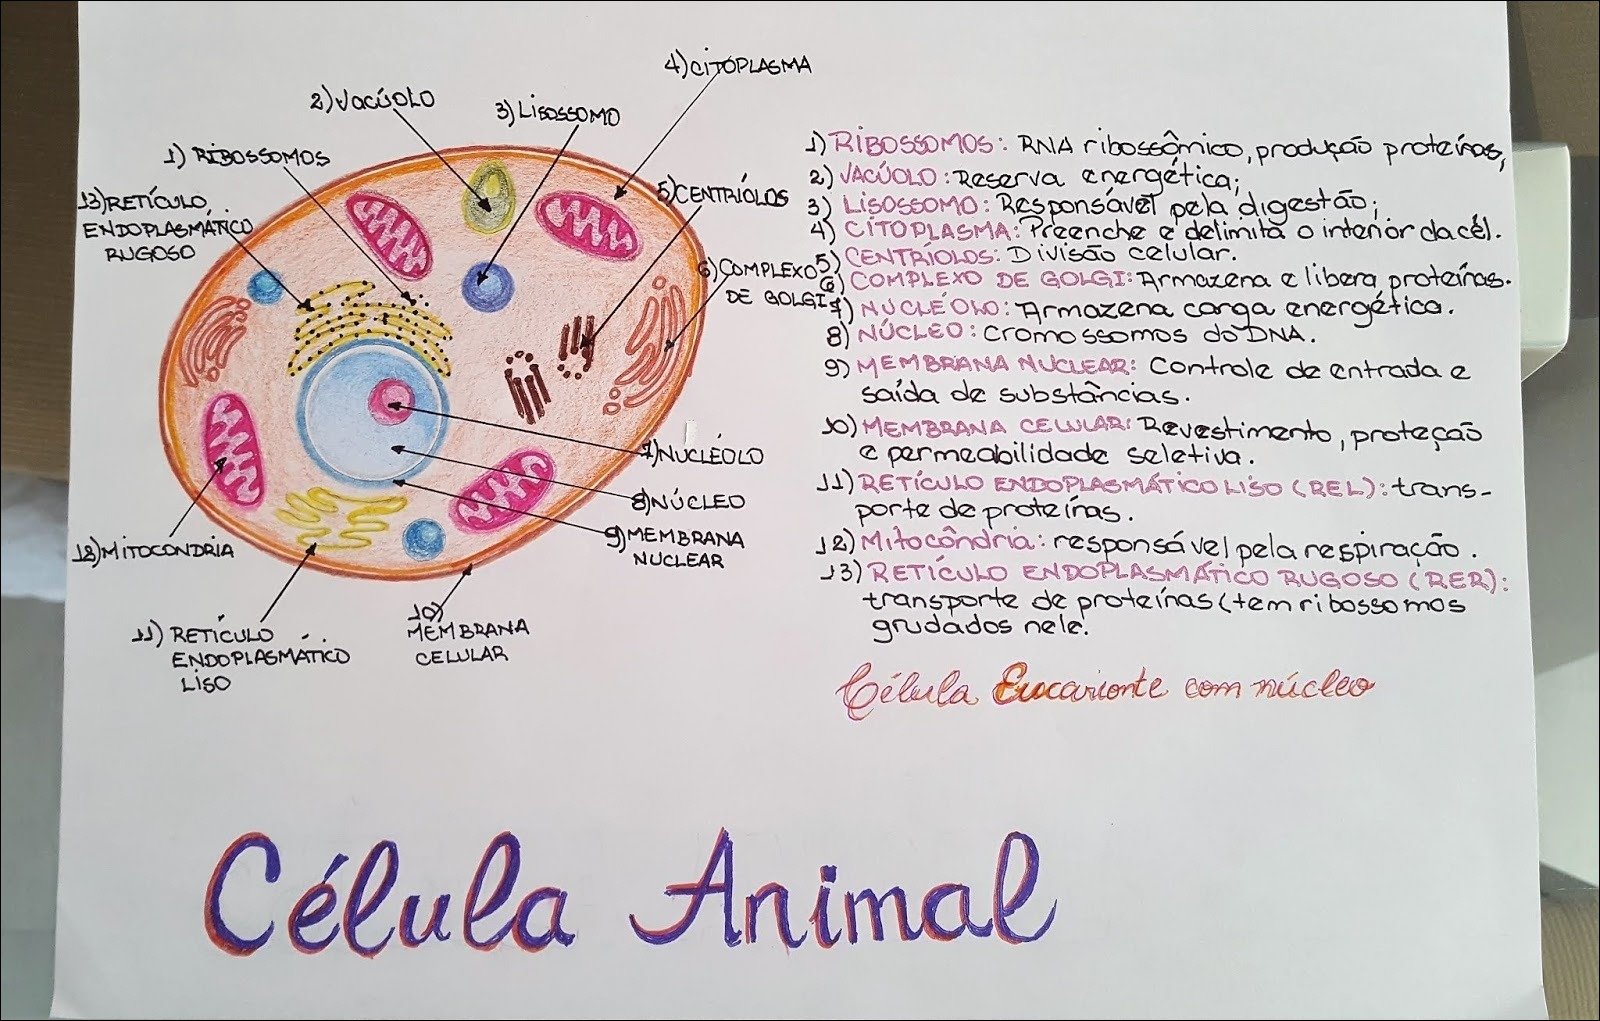 4) CITOPLASMA
2) VACÚOLO
3) LISOSSOMO
1) RIBOSSOMOS
13) RETÍCULO
ENDOPLASMÁTICO
RUGOSO
5) CENTRÍOLOS
6) COMPLEXO
DE GOLGI
7) NUCLÉOLO
8) NÚCLEO
9) MEMBRANA
NUCLEAR
12) MITOCONDRIA
10)
MEMBRANA
CELULAR
11) RETÍCULO
ENDOPLASMÁTICO
LISO
1) RIBOSSOMOS: RNA ribossômico, produção proteínas,
2) VACÚOLO: Reserva energética;
3) LISOSSOMO: Responsável pela digestão;
4) CITOPLASMA: Preenche e delimita o interior da cél.
5) CENTRÍOLOS: Divisão celular.
6) COMPLEXO DE GOLGI: Armazena e libera proteínas.
7) NUCLÉOLO: Armazena carga energética.
8) NÚCLEO: Cromossomos do DNA.
9) MEMBRANA NUCLEAR: Controle de entrada e
saída de substâncias.
10) MEMBRANA CELULAR: Revestimento, proteção
e permeabilidade seletiva.
11) RETÍCULO ENDOPLASMÁTICO LISO (REL): trans-
porte de proteínas.
12) Mitocôndria: responsável pela respiração.
13) RETÍCULO ENDOPLASMÁTICO RUGOSO (RER):
transporte de proteínas (tem ribossomos
grudados nele.
Célula Eucarionte com núcleo
Célula Animal